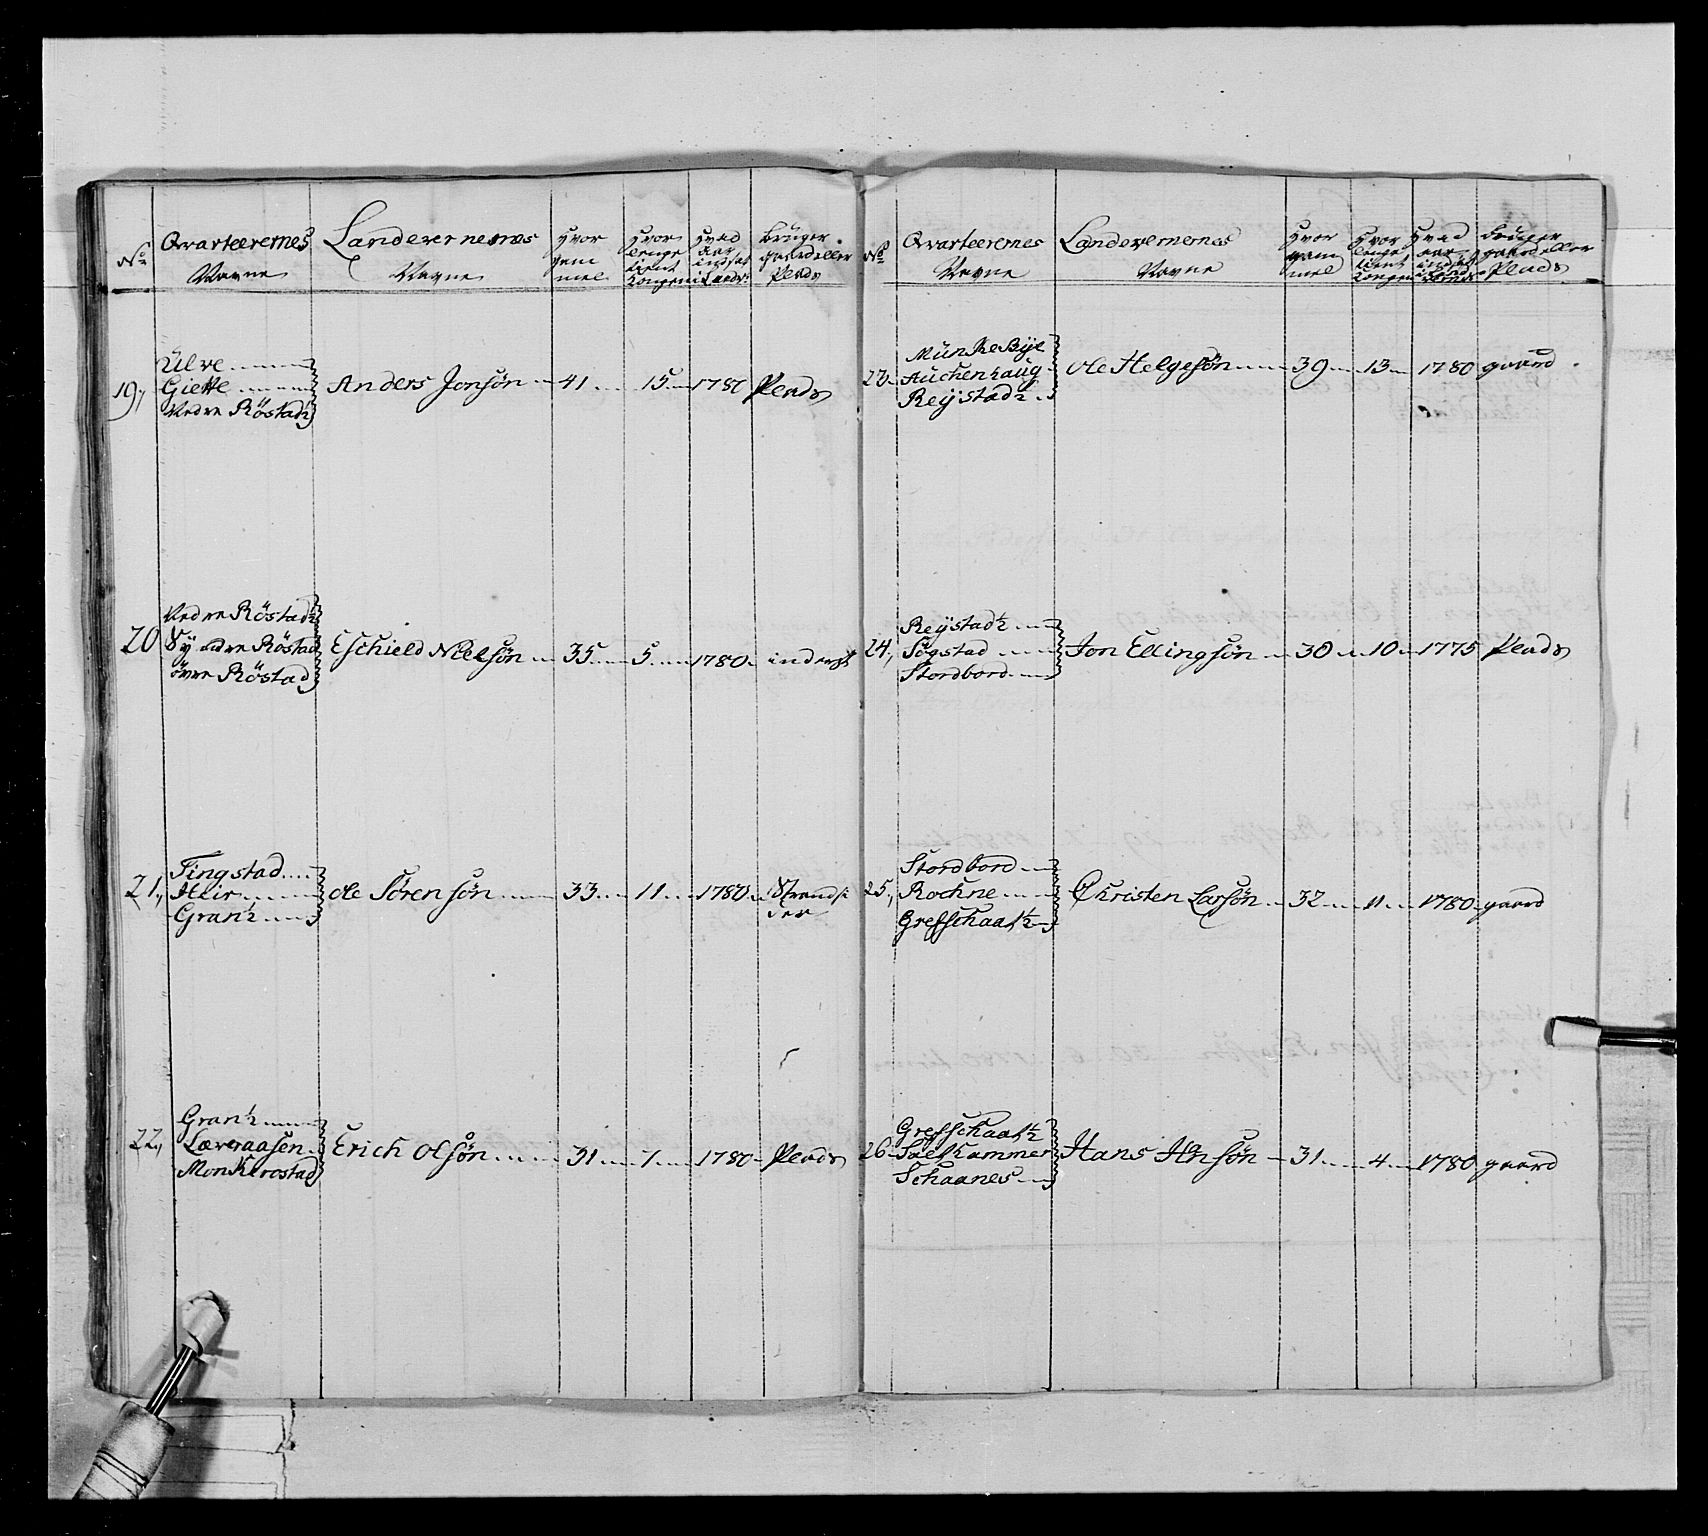 No Qvarteerernes Navne Landevernernes Navne Hvor gammel Hvor lenge tient Kongen Hvad Aar indsat i Landv: Bruger gaard eller Plads
19, Ulve
Giette
Nedre Röstad ½
Anders Jonsön 41 15 1780 Plads
20 Nedre Röstad ½
Syndre Röstad
övre Röstad
Eschield Nielsön 35 5 1780 inderst
21, Tingstad
Heir
Gran ½
Ole Sörensön 33 11 1780 Strandsi
der
22, Gran ½
Læveraasen
Monklrostad
Erich Olsön 31 7 1780 Plads
No Qvarteerernes Navne Landevernernes Navne Hvor gammel Hvor lenge tient Kongen Hvad aar indsat i Land Bruger gaard eller Plads
23 Münkebye
Auchenhaug
Reijstad ½
Ole Helgesön 39 13 1780 gaard
24, Reijstad ½
Sögstad
Stordbord
Jon Ellingsön 30 10 1775 Plads
25, Stordbord
Rochne
Grefschaat ½
Christen Larsön 32 11 1780 gaard
26 Grefschaat ½
Saelkammer
Schaanes
Hans Hansön 31 4 1780 gaard